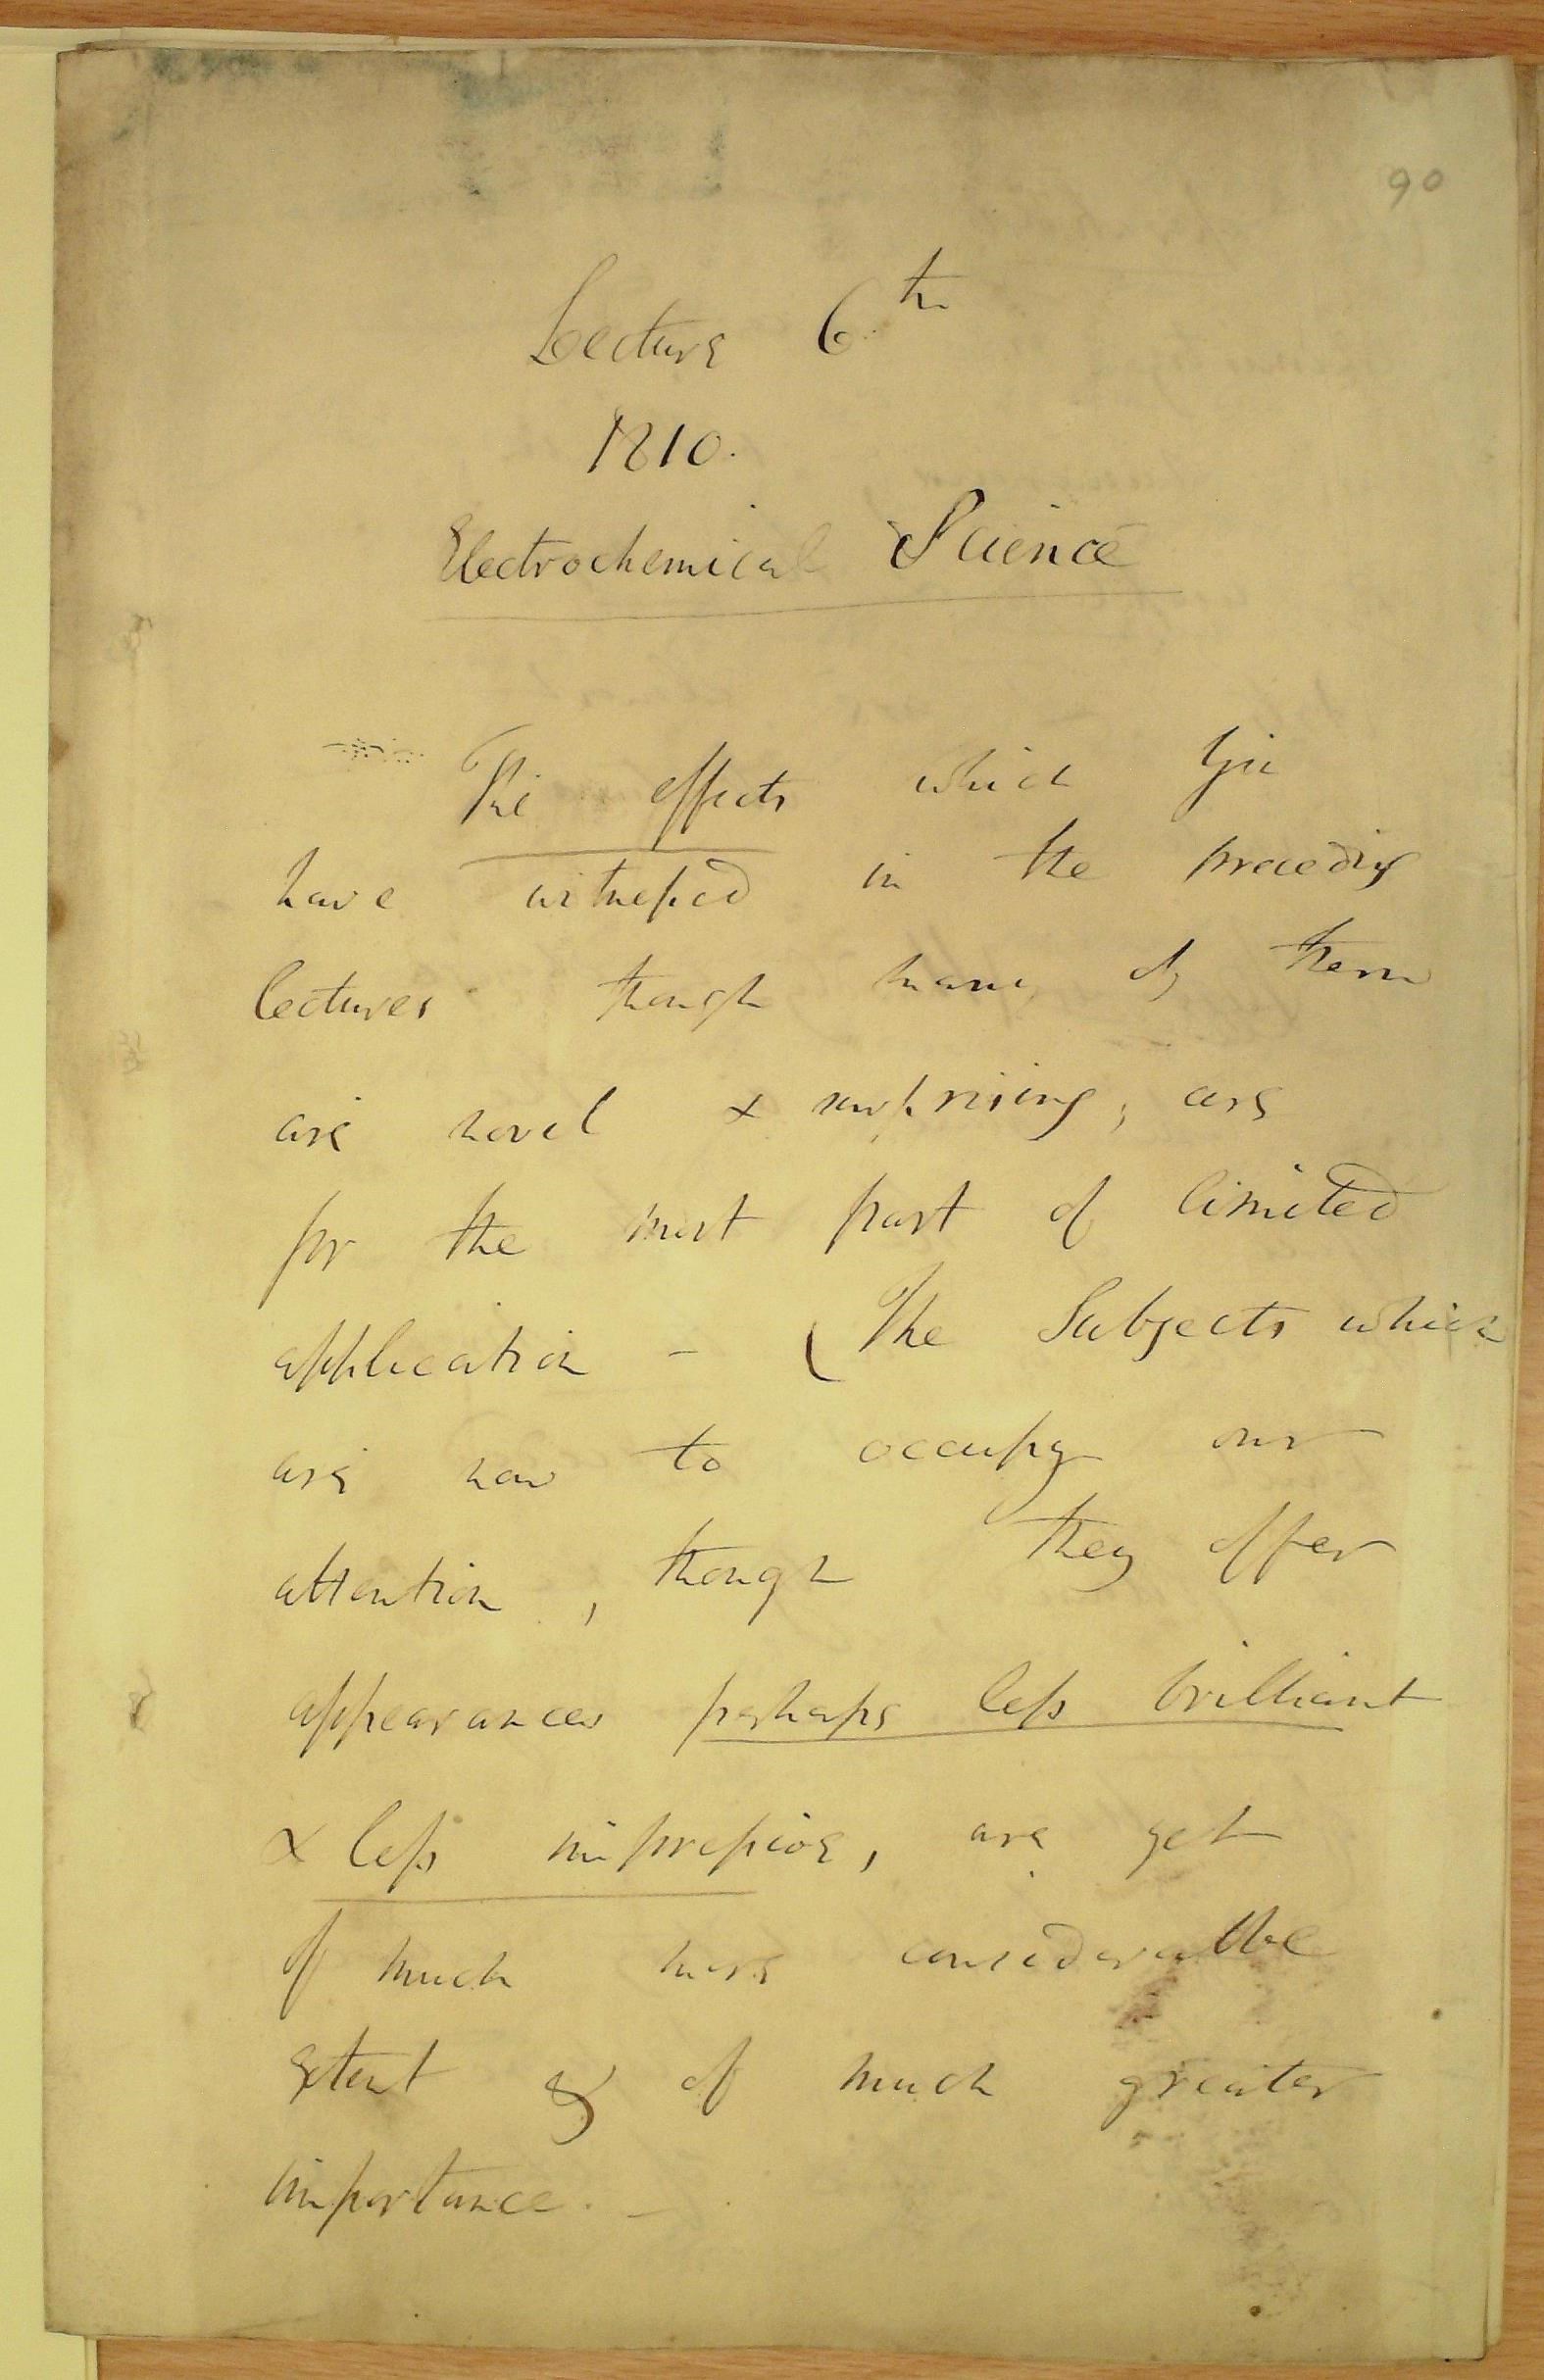 90
Lecture 6th
1810.
Electrochemical Science
The effects which You
have witnessed in the preceding
lectures though many of them
are novel & surprising, are
for the most part of limited
application - (The Subjects which
are now to occupy our
attention, though they offer
appearances perhaps less brilliant
& less impressive, are yet
of much more considerable
extent & of much greater
importance. -